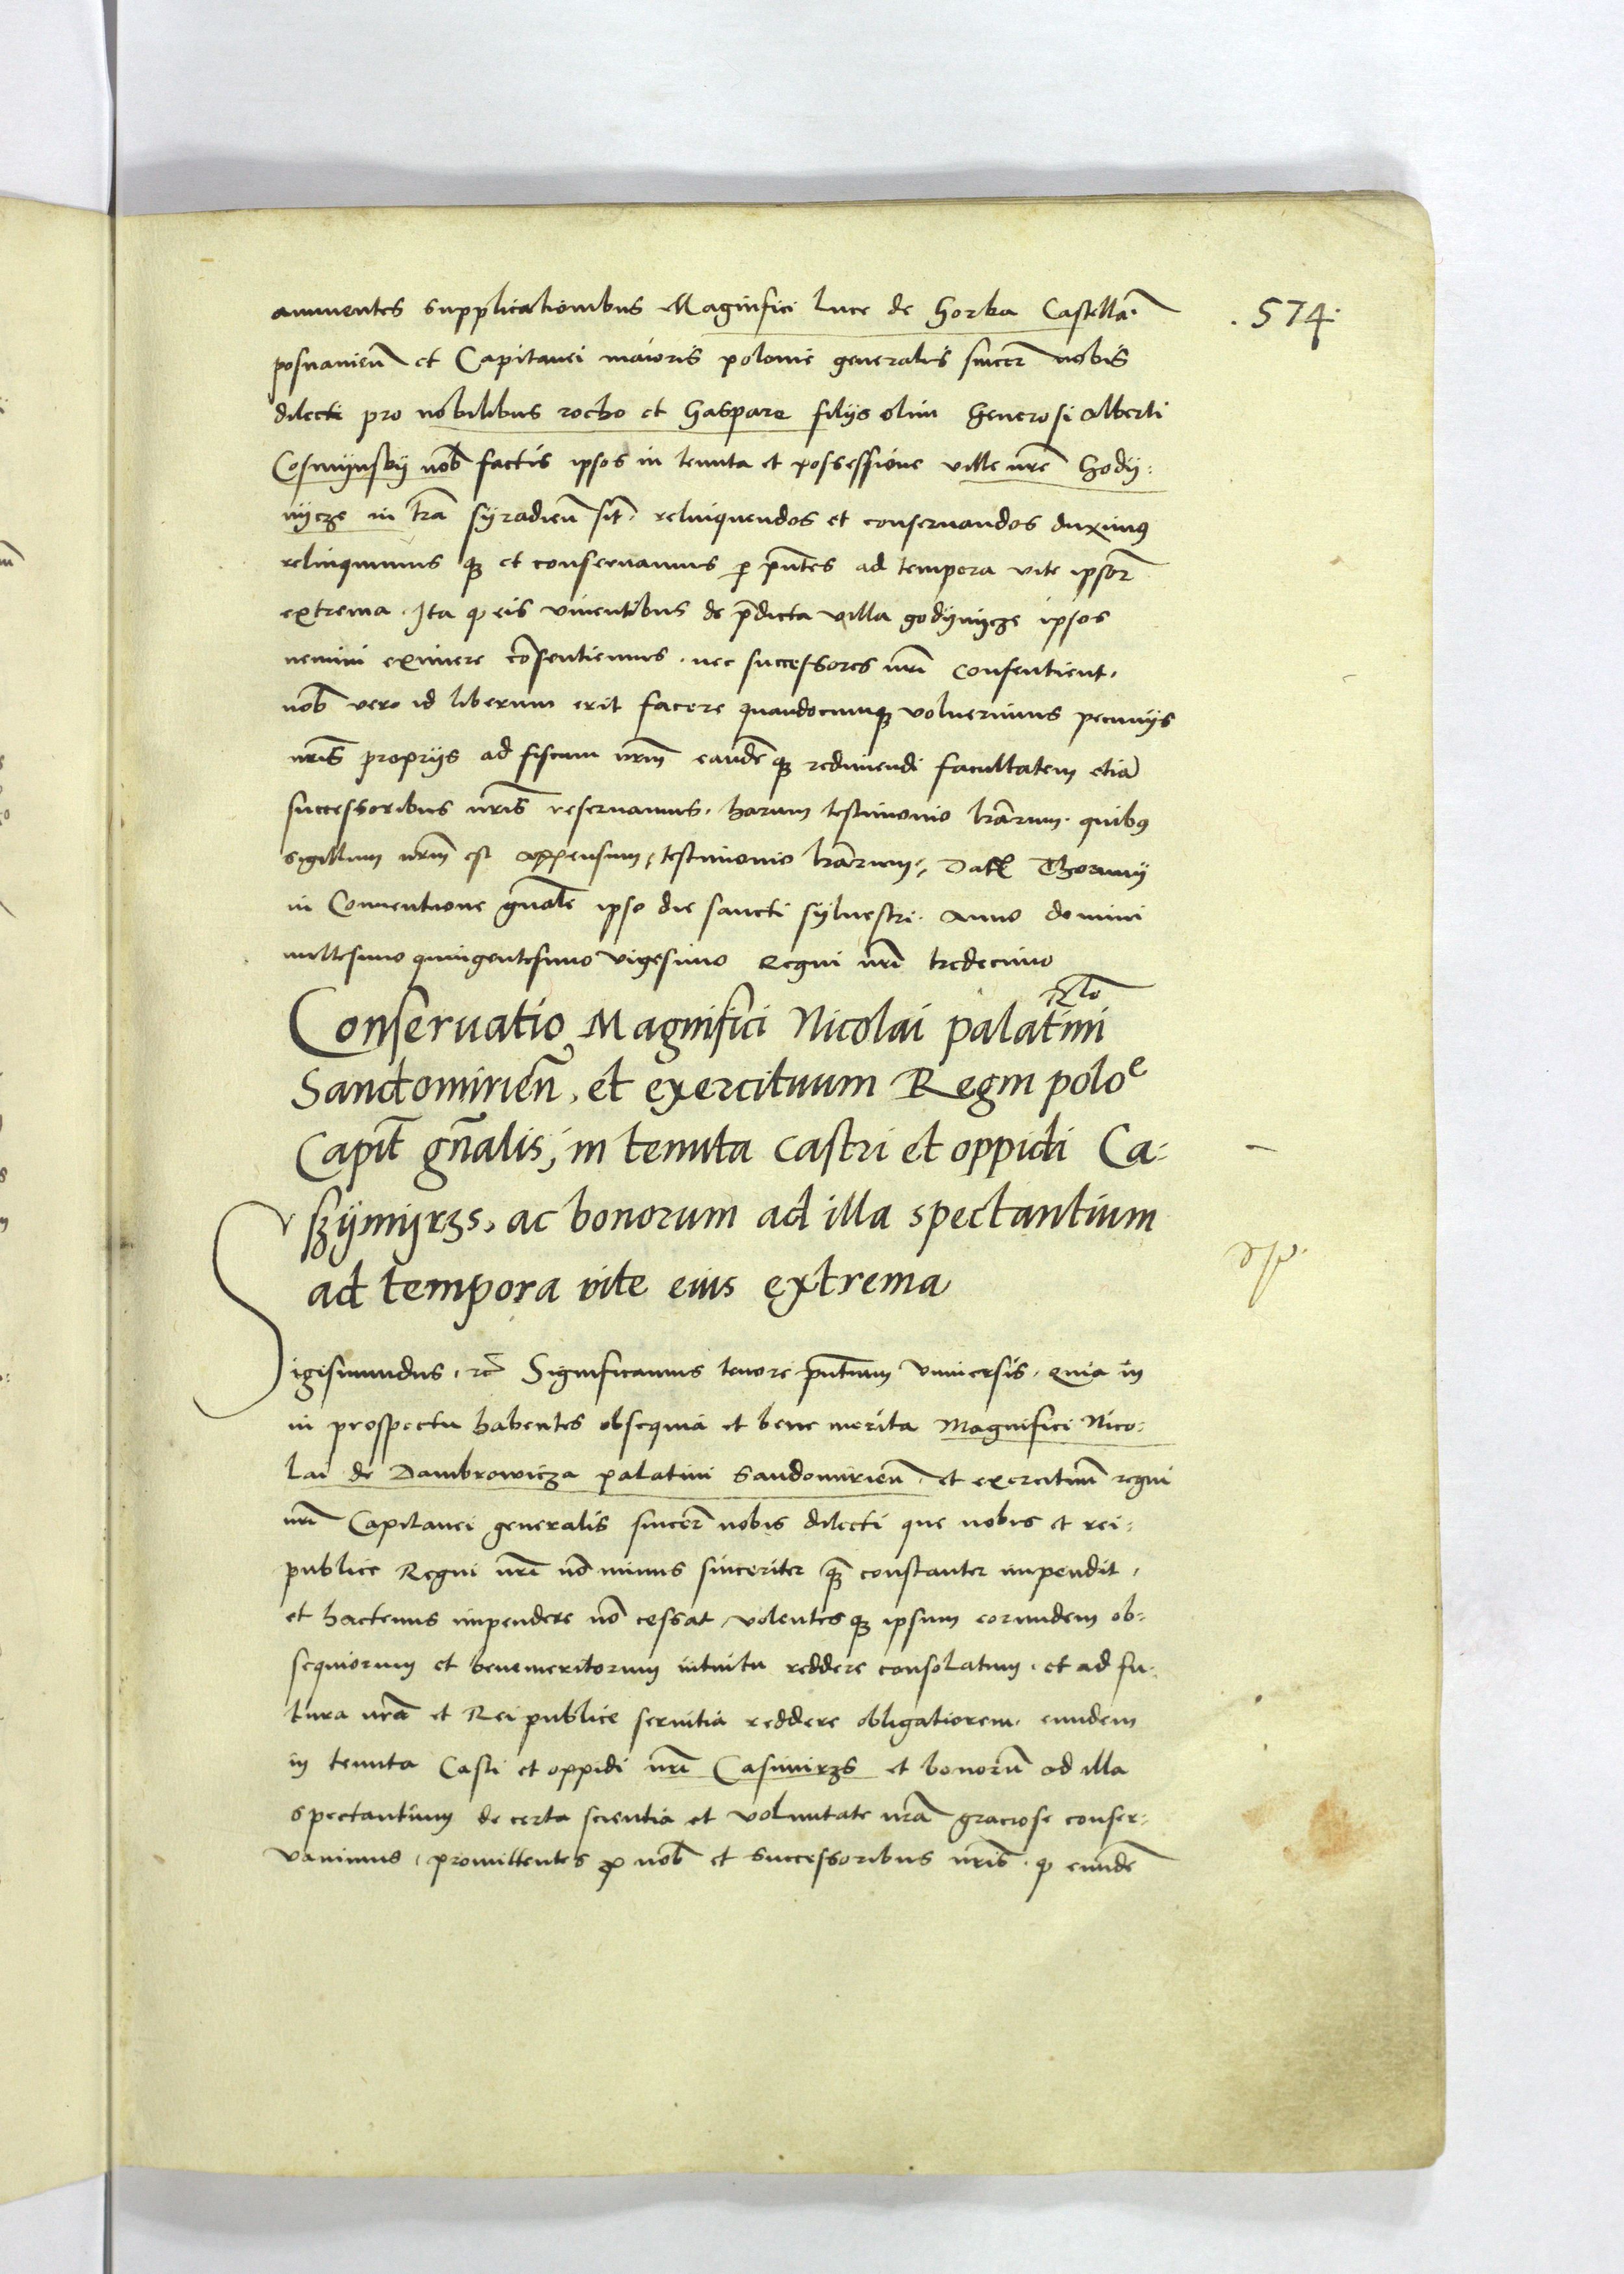 annuentes supplicationibus Magnifici Luce de Gorka Castellā.
.574.
posnanieñ et Capitanei maioris polonie generalis sincer̃ nobis
dilecti pro nobilibus rocho et Gaspare filijs olim Generosi Alberti
Cosmijnskij nob̃ factis ipsos in tenuta et possessione ville nr̃e Godij:
nijcze in tr̃a sijradieñ sit̃. relinquendos et conseruandos duximꝰ
relinquimus qꝫ et conseruamus ꝑ pñtes ad tempora vite ipsor̃
extrema. Ita ꝙ eis viuentibus de p̃dicta villa godijnijcze ipsos
nemini eximere cõsentiemus. nec successores nr̃i consentient.
nob̃ vero id liberum erit facere quandocumqꝫ voluerimus pecunijs
nr̃is proprijs ad fiscum nr̃m eandẽ qꝫ redimendi facultatem etiã
successoribus nr̃is reseruamus. harum testimonio lr̃arum. quibꝰ
sigillum nr̃m est appensum, testimonio lr̃arum, Datt̃ Thorunij
in Conuentione gñale ipso die sancti sijluestri. Anno domini
millesimo quingentesimo vigesimo Regni nr̃i tredecimo
Rl̃o
Conseruatio Magnifici Nicolai palatini
Sandomirieñ, et exercituum Regni poloᵉ
Capit̃ gñalis, in tenuta castri et oppidi Ca:
szijmijrzs, ac bonorum ad illa spectantium
ad tempora vite eius extrema
Sigismundus. rc̃ Significamus tenore pñtium Vniuersis. Quia in
in prospectu habentes obsequia et bene merita Magnifici Nico:
lai de Dambrowicza palatini Sandomirieñ. et exercituũ regni
nr̃i Capitanei generalis sincer̃ nobis dilecti que nobis et rei:
publice Regni nr̃i nõ minus sinceriter qꝫ̃ constanter impendit,
et hactenus impendere nõ cessat, volentes qꝫ ipsum eorundem ob:
sequiorum et benemeritorum intuitu reddere consolatum. et ad fu:
tura nr̃a et Rei publice seruitia reddere obligatiorem. eundem
in tenuta Casti et oppidi nr̃i Casimirzs et bonorũ ad illa
spectantium de certa scientia et voluntate nr̃a graciose conser:
vauimus, promittentes ꝓ nob̃ et successoribus nr̃is. ꝙ eundẽ